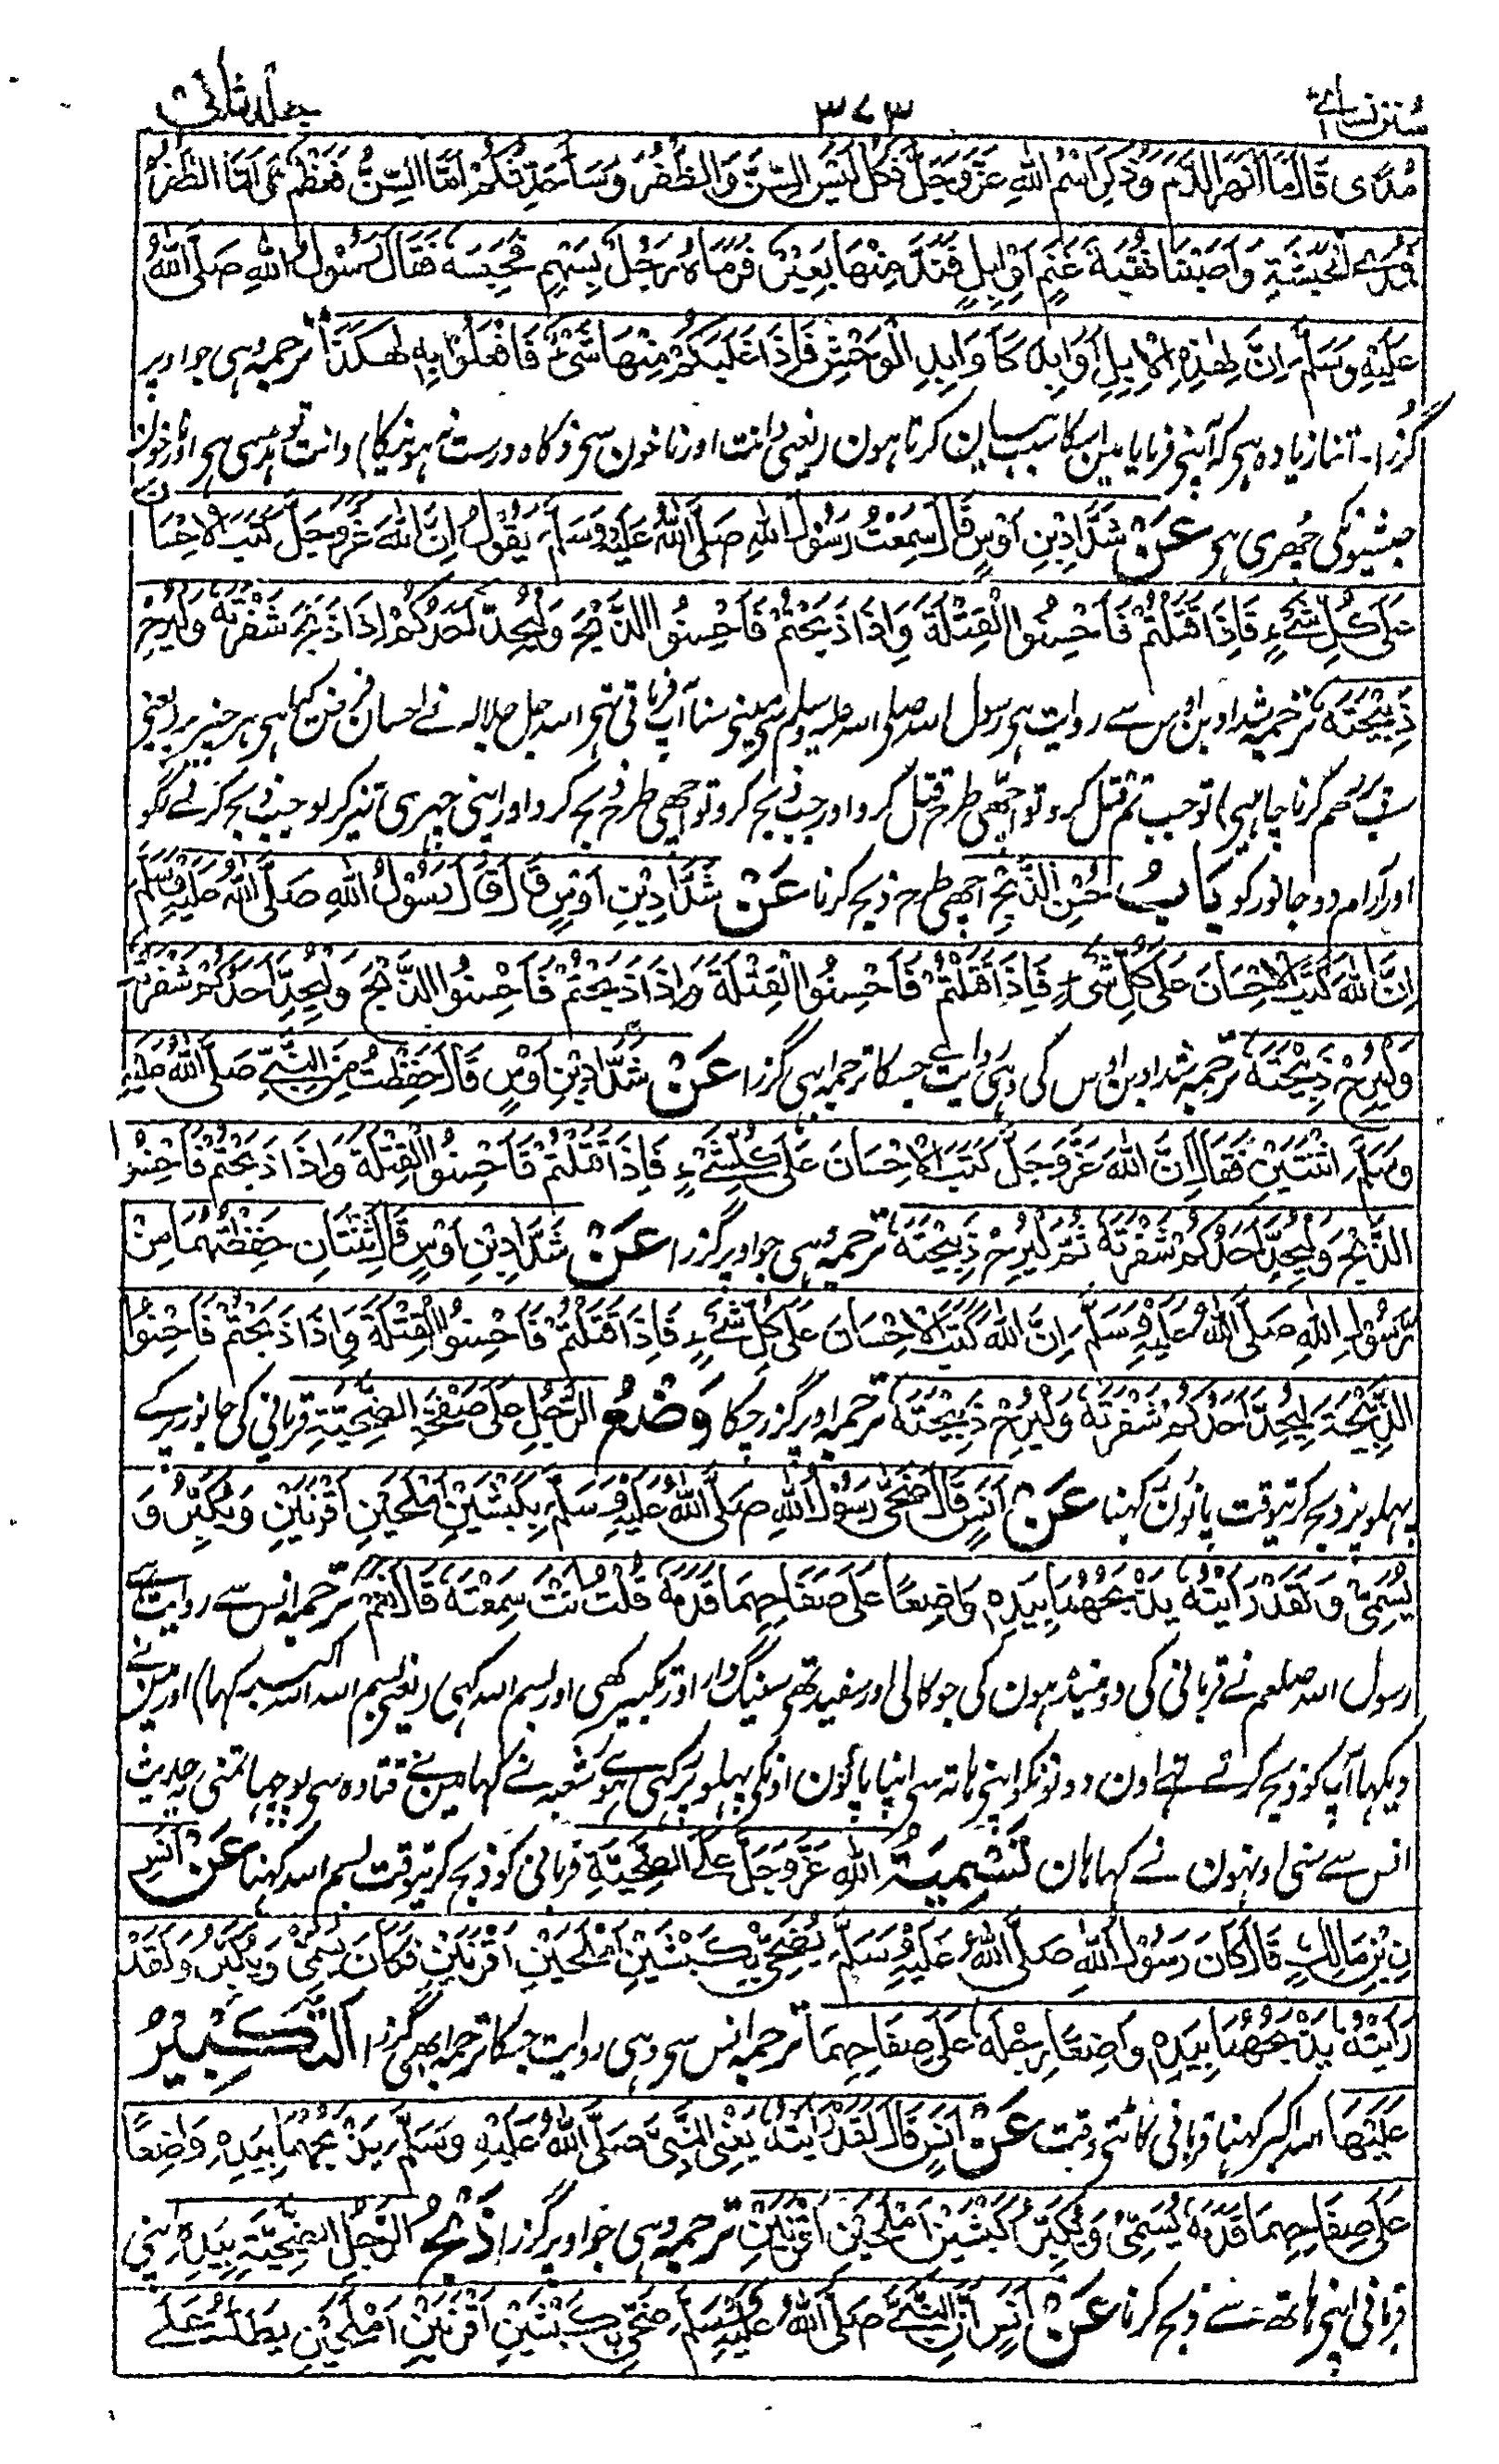 سُنن نسائی
۳۷۳
جلد ثانی
مُدًى قَالَ مَا اَنْهَرَ الدَّمَ وَذُكِرَ اسْمُ اللهِ عَزَّ وَجَلَّ فَكُلْ لَيْسَ السِّنَّ وَالظُّفُرَ وَسَاُحَدِّثُكُمْ اَمَّا السِّنُّ فَعَظْمٌ وَاَمَّا الظُّفُرُ
فَمُدَى الْحَبَشَةِ وَاَصَبْنَا نُهْبَةَ غَنَمٍ اَوْ اِبِلٍ فَنَدَّ مِنْهَا بَعِيْرٌ فَرَمَاهُ رَجُلٌ بِسَهْمٍ فَحَبَسَهٗ فَقَالَ رَسُوْلُ اللهِ صَلَّى اللهُ
عَلَيْهِ وَسَلَّمَ اِنَّ لِهٰذِهِ الْاِبِلِ اَوَابِدَ كَاَوَابِدِ الْوَحْشِ فَاِذَا غَلَبَكُمْ مِنْهَا شَيْءٌ فَافْعَلُوْا بِهٖ هٰكَذَا ترجمہ وہی جو اوپر
گزرا۔ اتنا زیادہ ہی کہ آپنے فرمایا میں اسکا سبب بیان کرتا ہون (یعنی دانت اور ناخون سی ذکاہ درست نہ ہونیکا) دانت تو ہڈی ہی اور ناخون
حبشیونکی چھری ہی عَنْ شَدَّادِ بْنِ اَوْسٍ قَالَ سَمِعْتُ رَسُوْلَ اللهِ صَلَّى اللهُ عَلَيْهِ وَسَلَّمَ يَقُوْلُ اِنَّ اللهَ عَزَّ وَجَلَّ كَتَبَ الْاِحْسَانَ
عَلٰى كُلِّ شَيْءٍ فَاِذَا قَتَلْتُمْ فَاَحْسِنُوا الْقِتْلَةَ وَاِذَا ذَبَحْتُمْ فَاَحْسِنُوا الذَّبْحَ وَلْيُحِدَّ اَحَدُكُمْ اِذَا ذَبَحَ شَفْرَتَهٗ وَلْيُرِحْ
ذَبِيْحَتَهٗ ترجمہ شداد بن اوس سے روایت ہی رسول اللہ صلی اللہ علیہ وسلم سی مینی سنا آپ فرماتی تہی اللہ جل جلالہ نے احسان فرض کیا ہی ہر چیز پر (یعنی
سب پر رحم کرنا چاہیی) تو جب تم قتل کرو تو اچھی طرح قتل کرو اور جب ذبح کرو تو اچھی طرح ذبح کرو اور اپنی چہری تیز کر لو جب ذبح کرنے لگو
اور آرام دو جانور کو بَابُ حُسْنِ الذَّبْحِ اچھی طرح ذبح کرنا عَنْ شَدَّادِ بْنِ اَوْسٍ قَالَ قَالَ رَسُوْلُ اللهِ صَلَّى اللهُ عَلَيْهِ وَسَلَّمَ
اِنَّ اللهَ كَتَبَ الْاِحْسَانَ عَلٰى كُلِّ شَيْءٍ فَاِذَا قَتَلْتُمْ فَاَحْسِنُوا الْقِتْلَةَ وَاِذَا ذَبَحْتُمْ فَاَحْسِنُوا الذَّبْحَ وَلْيُحِدَّ اَحَدُكُمْ شَفْرَتَهٗ
وَلْيُرِحْ ذَبِيْحَتَهٗ ترجمہ شداد بن اوس کی وہی روایت جسکا ترجمہ ابہی گزرا عَنْ شَدَّادِ بْنِ اَوْسٍ قَالَ حَفِظْتُ مِنَ النَّبِيِّ صَلَّى اللهُ عَلَيْهِ
وَسَلَّمَ اثْنَتَيْنِ فَقَالَ اِنَّ اللهَ عَزَّ وَجَلَّ كَتَبَ الْاِحْسَانَ عَلٰى كُلِّ شَيْءٍ فَاِذَا قَتَلْتُمْ فَاَحْسِنُوا الْقِتْلَةَ وَاِذَا ذَبَحْتُمْ فَاَحْسِنُوا
الذَّبْحَ وَلْيُحِدَّ اَحَدُكُمْ شَفْرَتَهٗ ثُمَّ لْيُرِحْ ذَبِيْحَتَهٗ ترجمہ وہی جو اوپر گزرا عَنْ شَدَّادِ بْنِ اَوْسٍ قَالَ ثِنْتَانِ حَفِظْتُهُمَا مِنْ
رَسُوْلِ اللهِ صَلَّى اللهُ عَلَيْهِ وَسَلَّمَ اِنَّ اللهَ كَتَبَ الْاِحْسَانَ عَلٰى كُلِّ شَيْءٍ فَاِذَا قَتَلْتُمْ فَاَحْسِنُوا الْقِتْلَةَ وَاِذَا ذَبَحْتُمْ فَاَحْسِنُوا
الذِّبْحَةَ لِيُحِدَّ اَحَدُكُمْ شَفْرَتَهٗ وَلْيُرِحْ ذَبِيْحَتَهٗ ترجمہ اوپر گزر چکا وَضْعُ الرَّجُلِ عَلٰى صَفْحَةِ الضَّحِيَّةِ قربانی کی جانور کے
پہلو پر ذبح کرتیوقت پانون رکہنا عَنْ اَنَسٍ قَالَ ضَحّٰى رَسُوْلُ اللهِ صَلَّى اللهُ عَلَيْهِ وَسَلَّمَ بِكَبْشَيْنِ اَمْلَحَيْنِ اَقْرَنَيْنِ وَيُكَبِّرُ وَ
يُسَمِّيْ وَلَقَدْ رَاَيْتُهٗ يَذْبَحُهُمَا بِيَدِهٖ وَاضِعًا عَلٰى صِفَاحِهِمَا قَدَمَهٗ قُلْتُ اَنْتَ سَمِعْتَهٗ قَالَ نَعَمْ ترجمہ انس سے روایت ہے
رسول اللہ صلعم نے قربانی کی دو مینڈہون کی جو کالی اور سفید تھی سینگ دار اور تکبیر کہی اور بسم اللہ کہی (یعنی بسم اللہ اللہ اکبر کہا) اور مین نے
دیکہا آپ کو ذبح کرتے تہے اون دونونکو اپنی ہاتہ سی اپنا پائون اونکی پہلو پر رکہی ہوئے شعبہ نے کہا مین نے قتادہ سی پوچہا تمنی یہ حدیث
انس سے سنی اونہون نے کہا ہان تَسْمِيَةُ اللهِ عَزَّ وَجَلَّ عَلَى الضَّحِيَّةِ قربانی کو ذبح کرتیوقت بسم اللہ کہنا عَنْ اَنَسِ
نِ بْنِ مَالِكٍ قَالَ كَانَ رَسُوْلُ اللهِ صَلَّى اللهُ عَلَيْهِ وَسَلَّمَ يُضَحِّيْ بِكَبْشَيْنِ اَمْلَحَيْنِ اَقْرَنَيْنِ فَكَانَ يُسَمِّيْ وَيُكَبِّرُ وَلَقَدْ
رَاَيْتُهٗ يَذْبَحُهُمَا بِيَدِهٖ وَاضِعًا رِجْلَهٗ عَلٰى صِفَاحِهِمَا ترجمہ انس سی وہی روایت جسکا ترجمہ ابھی گزرا اَلتَّكْبِيْرُ
عَلَيْهَا اللہ اکبر کہنا قربانی کاٹتی وقت عَنْ اَنَسٍ قَالَ لَقَدْ رَاَيْتُهٗ يَعْنِى النَّبِيَّ صَلَّى اللهُ عَلَيْهِ وَسَلَّمَ يَذْبَحُهُمَا بِيَدِهٖ وَاضِعًا
عَلٰى صِفَاحِهِمَا قَدَمَهٗ يُسَمِّيْ وَيُكَبِّرُ كَبْشَيْنِ اَمْلَحَيْنِ اَقْرَنَيْنِ ترجمہ وہی جو اوپر گزرا ذَبْحُ الرَّجُلِ الضَّحِيَّةَ بِيَدِهٖ اپنی
قربانی اپنی ہاتھ سے ذبح کرنا عَنْ اَنَسٍ اَنَّ النَّبِيَّ صَلَّى اللهُ عَلَيْهِ وَسَلَّمَ ضَحّٰى بِكَبْشَيْنِ اَقْرَنَيْنِ اَمْلَحَيْنِ يَطَأُ عَلٰى